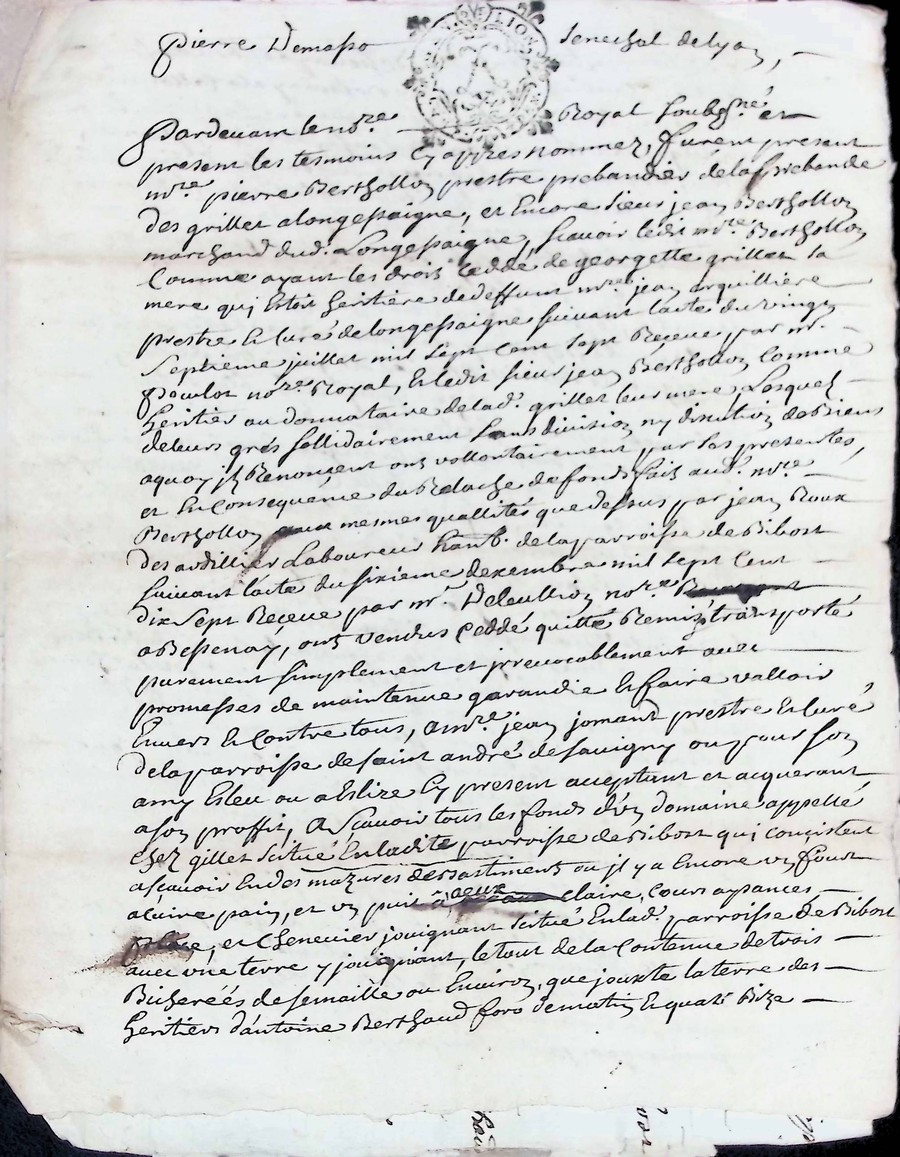 pierre Demasso senechal de lyon,
Pardevant le no.re Royal soubsg.né et
present les tesmoins cy appres nommez, furent present
m.re pierre Berthollon prestre prebandier de la prebande
des grillet a longessaigne, et Encore sieur jean Berthollon
marchand dud. Longessaigne, scavoir ledit m.re Berthollon
Comme ayant les droit Ceddé de georgette grillet sa
mere qui Estoit heritière de deffunt m.re jean arquilliere
prestre et curé de longessaigne suivant lacte du vingt
septieme juillet mil sept Cent sept Receue par m.r
no.re Royal, et ledit sieur jean Berthollon Comme
heritier ou donnataire de lad. grillet leur mere, Lesquel
de leurs grés sollidairement sans division ny discution de Biens
aquoy ils Renoncent ont vollontairement par les presentes,
et En Consequence du Relache de fonds fait aud. m.re
Berthollon aux mesmes quallités que dessus par jean Roux
des ardillier Laboureur hanb. de la parroisse de Bibost
suivant lacte du sixieme dexembre mil sept Cent
dix sept Receue par m.r Deleullion no.re
a Bessenay, ont vendus Ceddé quitté Remis et transporté
purement simplement et irrevocablement avec
promesses de maintenue garandie et faire valloir
Envers et Contre tous, a m.re jean jomant prestre et Curé
de la parroisse de saint andré de savigny ou pour son
amy Esleu ou a Eslire Cy present acceptant et acquerant
a son proffit, A scavoir tous les fonds d'un domaine appellé
chez gillet scitué En ladite parroisse de Bibost qui Concistent
a scavoir En des mazures de bastiment ou jl y a Encore un four
a Cuire pain, et un puit a eaux claire, Cours aysances
place, et Chenevier jouignant scitué En lad. parroisse de Bibost
avec une terre y jouignant, le tout de la Contenue de trois
Bichereés de semaille ou Environ, que jouxte la terre des
heritiers d'antoine Berthaud de matin et quasi Bize